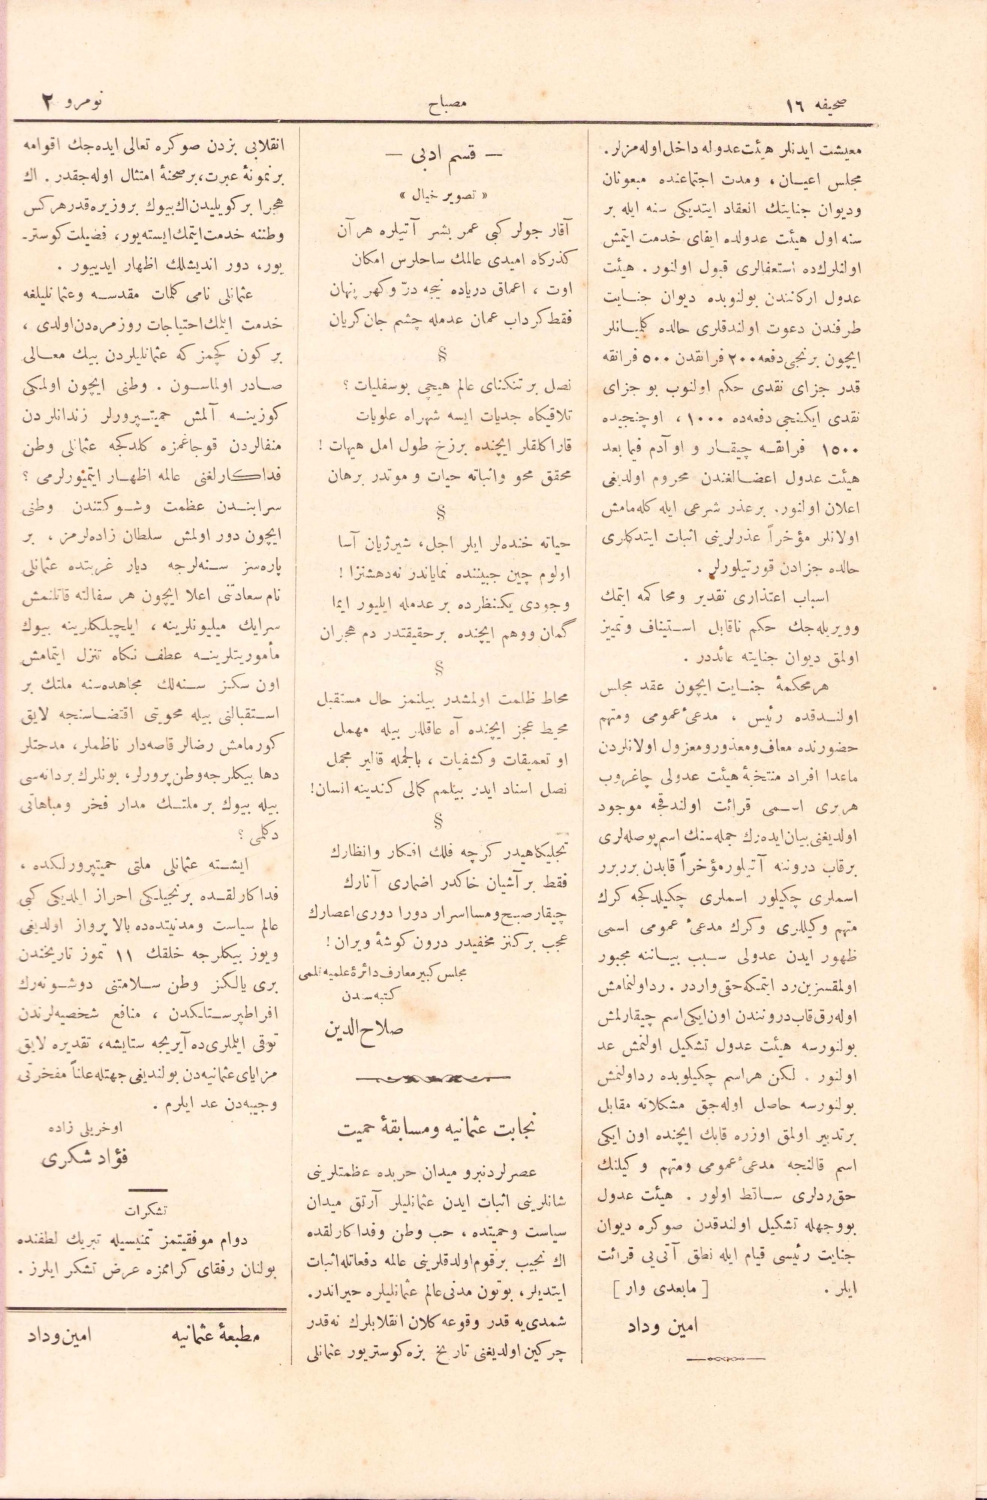 صحیفه ١٦
مصباح
نومرو ٢
معیشت ایدنلر هیئت عدوله داخل اوله‌مزلر.
مجلس اعیان، ومدت اجتماعنده مبعوثان
ودیوان جنایتك انعقاد ایتدیكی سنه ایله بر
سنه اول هیئت عدولده ایفای خدمت ایتمش
اولنلرك‌ده استعفالری قبول اولنور. هیئت
عدول اركانندن بولنوبده دیوان جنایت
طرفندن دعوت اولندقلری حالده كلمیانلر
ایچون برنجی دفعه ٢٠٠ فرانقدن ٥٠٠ فرانقه
قدر جزای نقدی حكم اولنوب بو جزای
نقدی ایكنجی دفعه‌ده ١٠٠٠، اوچنجیده
١٥٠٠ فرانقه چیقار و او آدم فیما بعد
هیئت عدول اعضالغندن محروم اولدیغی
اعلان اولنور. برعذر شرعی ایله كله‌مامش
اولانلر مؤخراً عذرلرینی اثبات ایتدكلری
حالده جزادن قورتیلورلر.
اسباب اعتذاری تقدیر ومحاكمه ایتمك
وویریله‌جك حكم ناقابل استیناف وتمییز
اولمق دیوان جنایته عائددر.
هرمحكمهٔ جنایت ایچون عقد مجلس
اولندقده رئیس، مدعیٔ عمومی ومتهم
حضورنده معاف ومعذور ومعزول اولانلردن
ماعدا افراد منتخبهٔ هیئت عدولی چاغروب
هربری اسمی قرائت اولندقجه موجود
اولدیغنی بیان ایده‌رك جمله‌سنك اسم پوصله‌لری
برقاب درونه آتیلور مؤخراً قابدن برربرر
اسملری چكیلور اسملری چكیلدكجه كرك
متهم وكیللری وكرك مدعیٔ عمومی اسمی
ظهور ایدن عدولی سبب بیاننه مجبور
اولمقسزین رد ایتمكه حق واردر. رد اولنمامش
اوله‌رق قاب درونندن اون ایكی اسم چیقارلمش
بولنورسه هیئت عدول تشكیل اولنمش عد
اولنور. لكن هراسم چكیلوبده رد اولنمش
بولنورسه حاصل اوله‌جق مشكلاته مقابل
برتدبیر اولمق اوزره قابك ایچنده اون ایكی
اسم قالنجه مدعیٔ عمومی ومتهم وكیلنك
حق ردلری ساقط اولور. هیئت عدول
بووجهله تشكیل اولندقدن صوكره دیوان
جنایت رئیسی قیام ایله نطق آتی‌یی قرائت
ایلر. [ مابعدی وار ]
امین وداد
— قسم ادبی —
« تصویر خیال »
آقار جولر كبی عمر بشر آتیلره هرآن
كذركاه امیدی عالمك ساحلرس امكان
اوت، اعماق دریاده نیجه در وكهر پنهان
فقط كرداب عمان عدمله چشم جان كریان
§
نصل برتنكنای عالم هیچی بوسفلیات؟
تلاقیكاه جدیات ایسه شهراه علویات
قاراكلقلر ایچنده برزخ طول امل هیهات!
محقق محو واثباته حیات و موتدر برهان
§
حیاته خنده‌لر ایلر اجل، شیرژیان آسا
اولوم چین جبیننده نمایاندر نه‌دهشتزا!
وجودی یكنظرده بر عدمله ایلیور ایما
گمان ووهم ایچنده برحقیقتدر دم هجران
§
محاط ظلمت اولمشدر بیلنمز حال مستقبل
محیط عجز ایچنده آه عاقللر بیله مهمل
او تعمیقات وكشفیات، بالجمله قالیر مجمل
نصل اسناد ایدر بیلمم كمالی كندینه انسان!
§
تجلیكاهیدر كرچه فلك افكار وانظارك
فقط برآشیان خاكدر اضماری آثارك
چیقار صبح ومسا اسرار دورا دوری اعصارك
عجب بركنز مخفیدر درون كوشهٔ ویران!
مجلس كبیر معارف دائرهٔ علمیه قلمی
كتبه‌سندن
صلاح‌الدین
نجابت عثمانیه ومسابقهٔ حمیت
عصرلردنبرو میدان حربده عظمتلرینی
شانلرینی اثبات ایدن عثمانلیلر آرتق میدان
سیاست وحمیتده، حب وطن وفداكارلقده
اك نجیب برقوم اولدقلرینی عالمه دفعاتله اثبات
ایتدیلر، بوتون مدنی عالم عثمانلیلره حیراندر.
شمدی‌یه قدر وقوعه كلان انقلابلرك نه‌قدر
چركین اولدیغنی تاریخ بزه كوستریور عثمانلی
انقلابی بزدن صوكره تعالی ایده‌جك اقوامه
برنمونهٔ عبرت، برصحنهٔ امتثال اوله‌جقدر. اك
هجرا بركویلیدن اك بیوك بروزیره قدر هركس
وطننه خدمت ایتمك ایسته‌یور، فضیلت كوستر-
یور، دور اندیشلك اظهار ایدییور.
عثمانلی نامی كلمات مقدسه وعثمانلیلغه
خدمت ایتمك احتیاجات روزمره‌دن اولدی،
بركون كچمز كه عثمانلیلردن بیك معالی
صادر اولماسون. وطنی ایچون اولمكی
كوزینه آلمش حمیتپرورلر زندانلردن
منفالردن قوجاغمزه كلدكجه عثمانلی وطن
فداكارلغنی عالمه اظهار ایتمیورلرمی؟
سرایندن عظمت وشوكتندن وطنی
ایچون دور اولمش سلطان زاده‌لرمز، بر
پاره‌سز سنه‌لرجه دیار غربتده عثمانلی
نام سعادتنی اعلا ایچون هر سفالته قاتلنمش
سرایك میلیونلرینه، ایلچیلكلرینه بیوك
مأموریتلرینه عطف نكاه تنزل ایتمامش
اون سكز سنه‌لك مجاهده‌سنه ملتك بر
استقبالنی بیله محویتی اقتضاسنجه لایق
كورمامش رضالر قاصه‌دار ناظملر، مدحتلر
دها بیكلرجه وطن پرورلر، بونلرك بردانه‌سی
بیله بیوك برملتك مدار فخر ومباهاتی
دكلمی؟
ایشته عثمانلی ملتی حمیتپرورلكده،
فداكارلقده برنجیلكی احراز ایلدیكی كبی
عالم سیاست ومدنیتده‌ده بالا پرواز اولدیغی
ویوز بیكلرجه خلقك ١١ تموز تاریخندن
بری یالكز وطن سلامتنی دوشونه‌رك
افراطپرستلكدن، منافع شخصیه‌لرندن
توقی ایلملری‌ده آیریجه ستایشه، تقدیره لایق
مزایای عثمانیه‌دن بولندیغی جهتله علناً مفخرتی
وجیبه‌دن عد ایلرم.
اوخریلی زاده
فؤاد شكری
تشكرات
دوام موفقیتمز تمنیسیله تبریك لطفنده
بولنان رفقای كراممزه عرض تشكر ایلرز.
مطبعهٔ عثمانیه
امین وداد